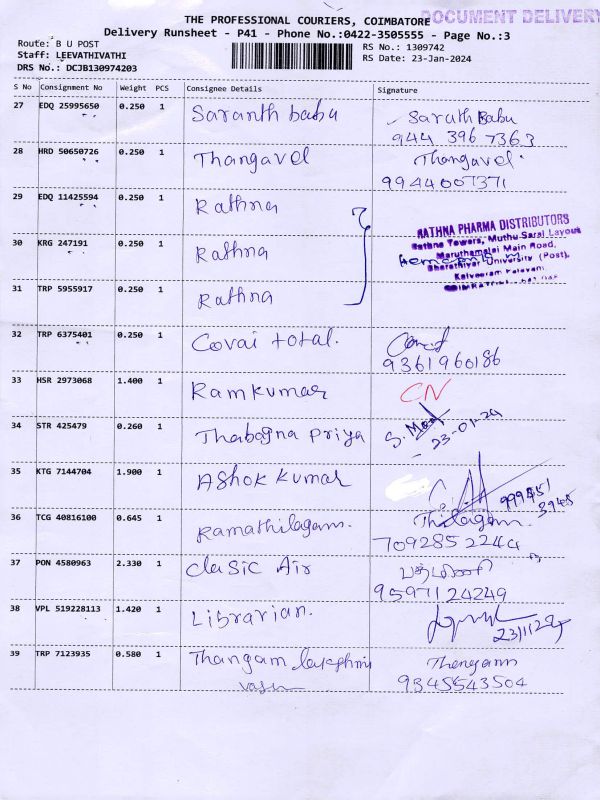 THE PROFESSIONAL COURIERS, COIMBATORE
DOCUMENT DELIVERY
Delivery Runsheet - P41 - Phone No.:0422-3505555 - Page No.:3
Route: B U POST
RS No.: 1309742
Staff: LEEVATHIVATHI
RS Date: 23-Jan-2024
DRS No.: DCJB130974203
S No Consignment No Weight PCS Consignee Details Signature
27 EDQ 25995650 0.250 1 Saranth babu Sarath Babu
944 396 7363
28 HRD 50650726 0.250 1 Thangavel Thangavel.
9944007371
29 EDQ 11425594 0.250 1 Rathna
RATHNA PHARMA DISTRIBUTORS
Rathna Towers, Muthu Sarai Layout
Maruthamalai Main Road,
30 KRG 247191 0.250 1 Rathna
Bharathiyar University (Post),
31 TRP 5955917 0.250 1 Rathna
32 TRP 6375401 0.250 1 Covai total.
9361960186
33 HSR 2973068 1.400 1 Ramkumar CN
34 STR 425479 0.260 1 Thabagna Priya
23-01-24
35 KTG 7144704 1.900 1 Ashok kumar
36 TCG 40816100 0.645 1 Ramathilagam. Thilagam.
709285 2244
37 PON 4580963 2.330 1 Clasic Air பத்மினி
9597124249
38 VPL 519228113 1.420 1 Librarian.
39 TRP 7123935 0.580 1 Thangam lakshmi Thangam
vasu 9345543504